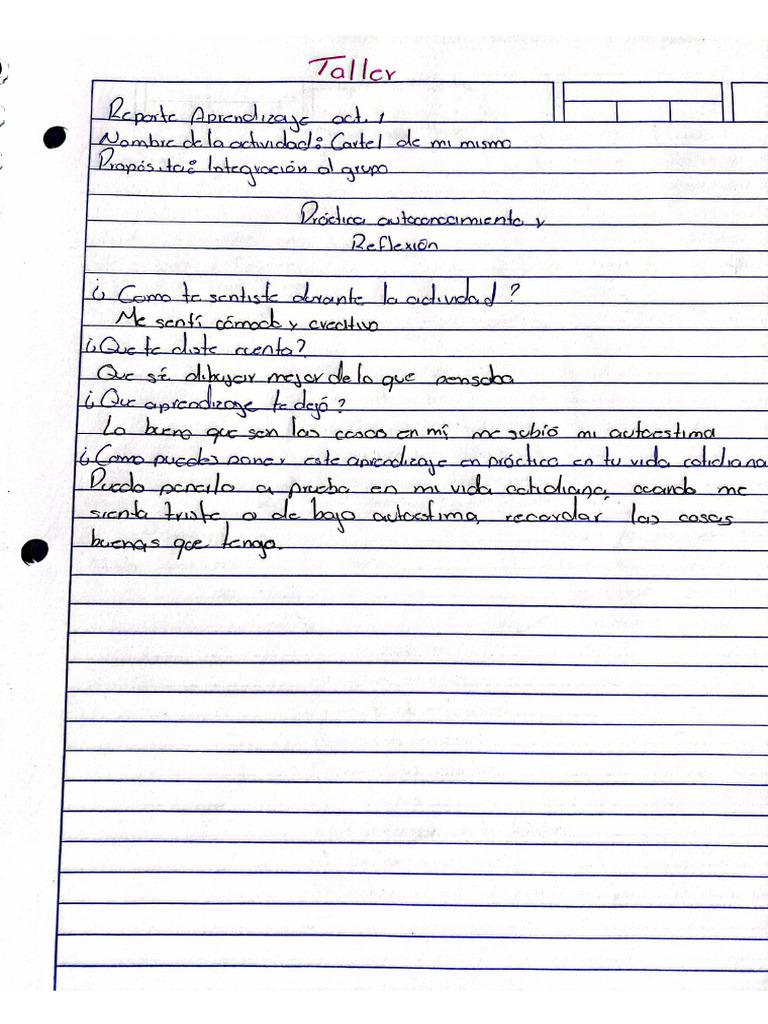 Taller
Reporte Aprendizaje act. 1
Nombre de la actividad: Cartel de mi mismo
Propósito: Integración al grupo
Práctica autoconocimiento y
Reflexión
¿Como te sentiste durante la actividad?
Me sentí cómodo y creativo
¿Que te diste cuenta?
Que sé dibujar mejor de lo que pensaba
¿Que aprendizaje te dejó?
Lo bueno que son las cosas en mí, me subió mi autoestima
¿Como puedes poner este aprendizaje en práctica en tu vida cotidiana
Puedo ponerlo a prueba en mi vida cotidiana, cuando me
sienta triste o de bajo autoestima, recordar las cosas
buenas que tengo.